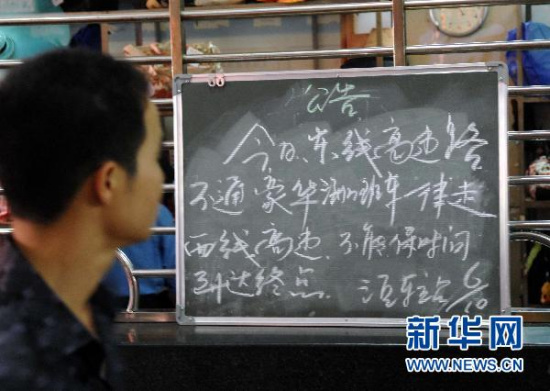 公告
今日、东线高速路
不通豪华洲际班车一律走
西线高速、不能保时间
到达终点. 汽车站 6/10
新华网
WWW.NEWS.CN